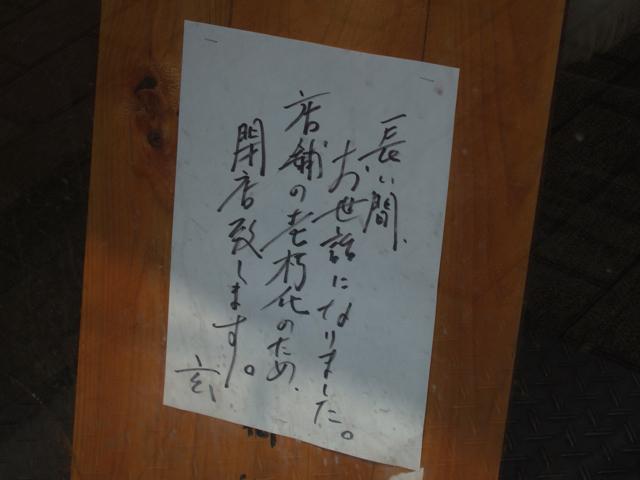 長い間、
お世話になりました。
店舗の老朽化のため、
閉店致します。
玄